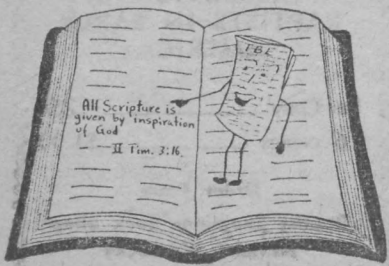 All Scripture is
given by inspiration
of God
II Tim. 3:16.